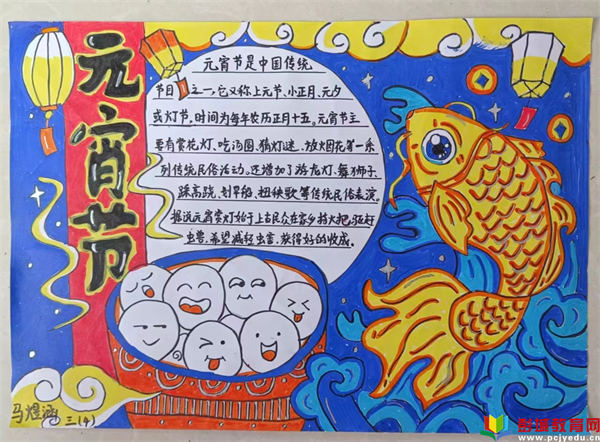 元宵节
元宵节是中国传统
节日之一,它又称上元节、小正月、元夕
或灯节,时间为每年农历正月十五。元宵节主
要有赏花灯、吃汤圆、猜灯谜、放烟花等一系
列传统民俗活动。还增加了游龙灯、舞狮子、
踩高跷、划旱船、扭秧歌等传统民俗表演。
据说元宵赏灯始于上古民众在乡间持火把驱赶
虫兽,希望减轻虫害,获得好的收成。
马煜涵
三(4)
彭城教育网
www.pcjyedu.cn